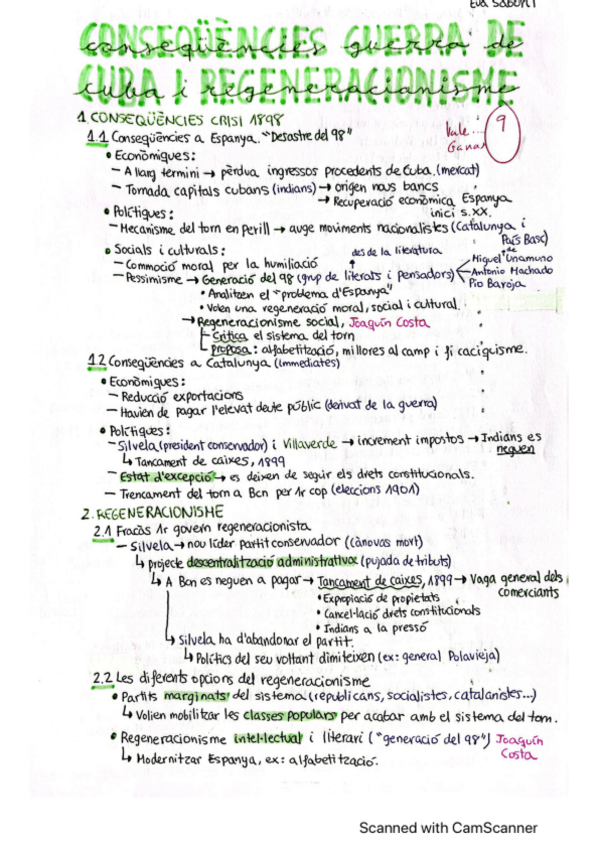 Eva Saboni
CONSEQÜÈNCIES GUERRA DE
CUBA i REGENERACIONISME
1. CONSEQÜÈNCIES CRISI 1898
Vale...
Ganas
9
1.1 Conseqüències a Espanya. "Desastre del 98"
• Econòmiques:
– A llarg termini → pèrdua ingressos procedents de Cuba. (mercat)
– Tornada capitals cubans (indians) → origen nous bancs
→ Recuperació econòmica Espanya
inici s.XX.
• Polítiques:
– Mecanisme del torn en perill → auge moviments nacionalistes (Catalunya i
País Basc)
• Socials i culturals:
des de la literatura
– Commoció moral per la humiliació
– Pessimisme → Generació del 98 (grup de literats i pensadors)
Miguel de Unamuno
Antonio Machado
Pio Baroja
• Analitzen el "problema d'Espanya"
• Volen una regeneració moral, social i cultural.
→ Regeneracionisme social, Joaquín Costa
Critica el sistema del torn
Proposa: alfabetització, millores al camp i fi caciquisme.
1.2 Conseqüències a Catalunya (immediates)
• Econòmiques:
– Reducció exportacions
– Havien de pagar l'elevat deute públic (derivat de la guerra)
• Polítiques:
– Silvela (president conservador) i Villaverde → increment impostos → Indians es
neguen
↳ Tancament de caixes, 1899
– Estat d'excepció → es deixen de seguir els drets constitucionals.
– Trencament del torn a Bcn per 1r cop (eleccions 1901)
2. REGENERACIONISME
2.1 Fracàs 1r govern regeneracionista
– Silvela → nou líder partit conservador (Cànovas mort)
↳ projecte descentralització administrativa (pujada de tributs)
↳ A Bcn es neguen a pagar → Tancament de caixes, 1899 → Vaga general dels
comerciants
• Expropiació de propietats
• Cancel·lació drets constitucionals
• Indians a la pressó
↳ Silvela ha d'abandonar el partit.
↳ Polítics del seu voltant dimiteixen (ex: general Polavieja)
2.2 Les diferents opcions del regeneracionisme
• Partits marginats del sistema (republicans, socialistes, catalanistes...)
↳ Volien mobilitzar les classes populars per acabar amb el sistema del torn.
• Regeneracionisme intel·lectual i literari ("generació del 98") Joaquín
Costa
↳ Modernitzar Espanya, ex: alfabetització.
Scanned with CamScanner